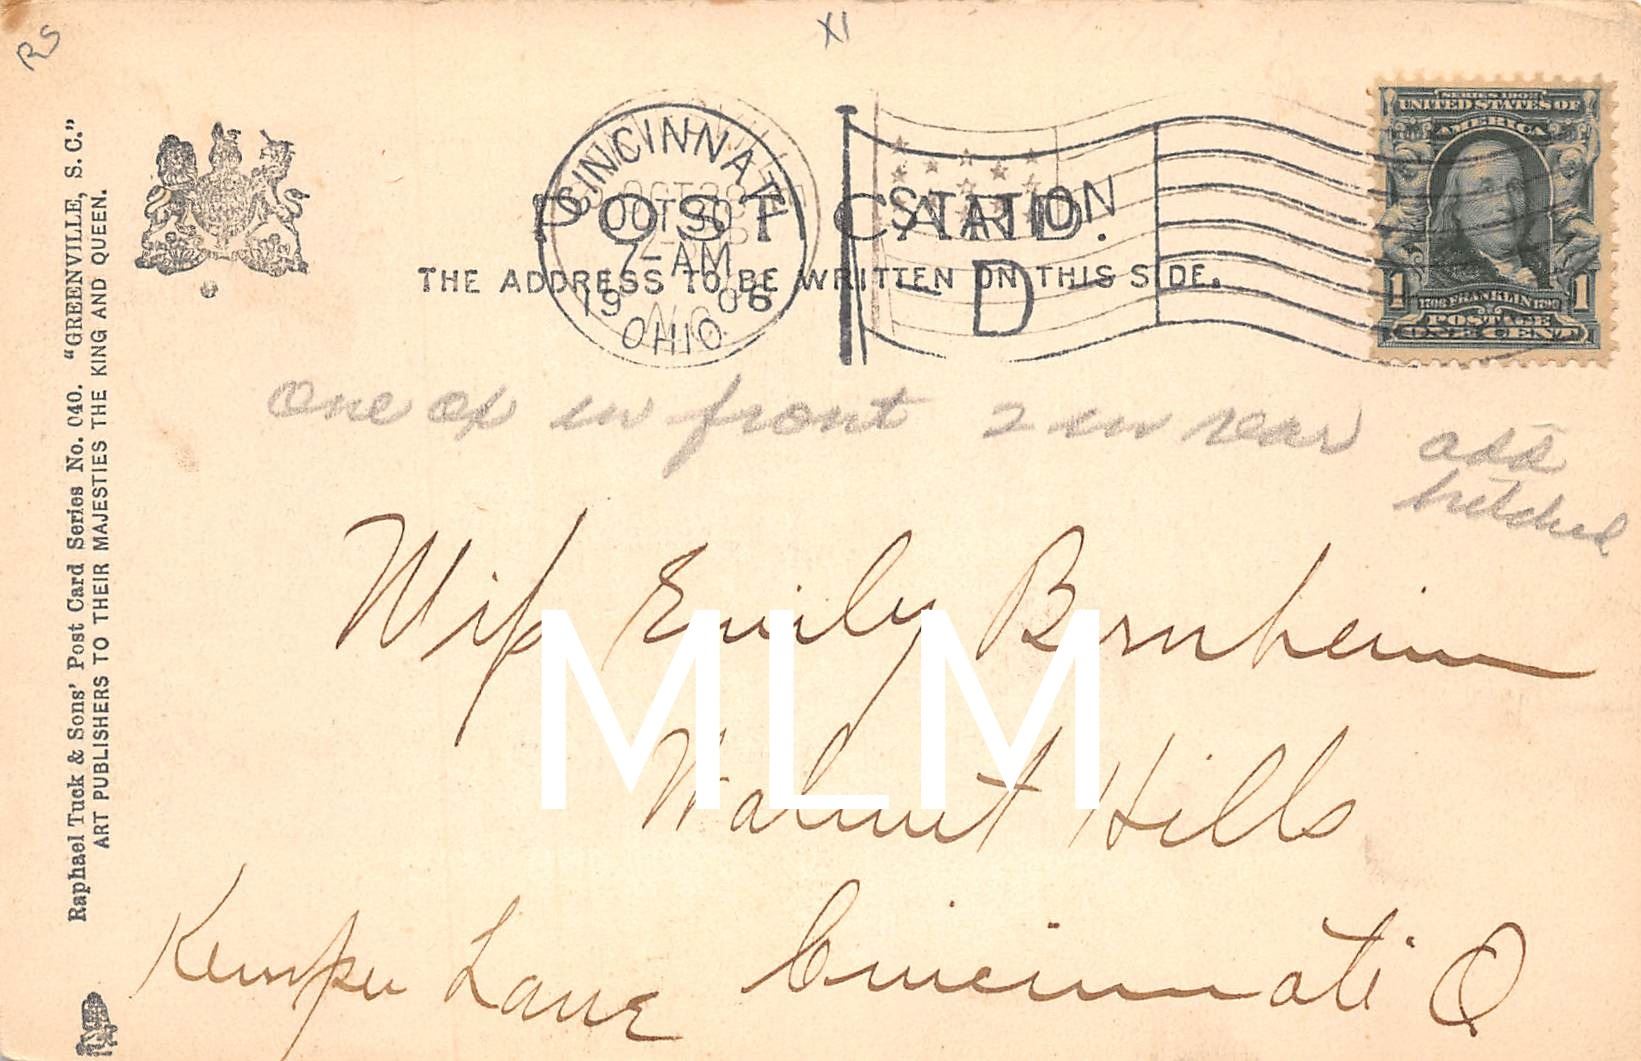 RS
XI
Raphael Tuck & Sons' Post Card Series No. 040. "GREENVILLE, S. C."
ART PUBLISHERS TO THEIR MAJESTIES THE KING AND QUEEN.
CINCINNATI
OCT 30
7-AM
1906
OHIO
STATION
D
POST CARD.
THE ADDRESS TO BE WRITTEN ON THIS SIDE.
SERIES 1902
UNITED STATES OF
AMERICA
1 1
1706 FRANKLIN 1790
POSTAGE
ONE CENT
One ox in front 2 in rear
hitched
Miss Emily Bernheim
Walnut Hills
Kemper Lane Cincinnati O
MLM